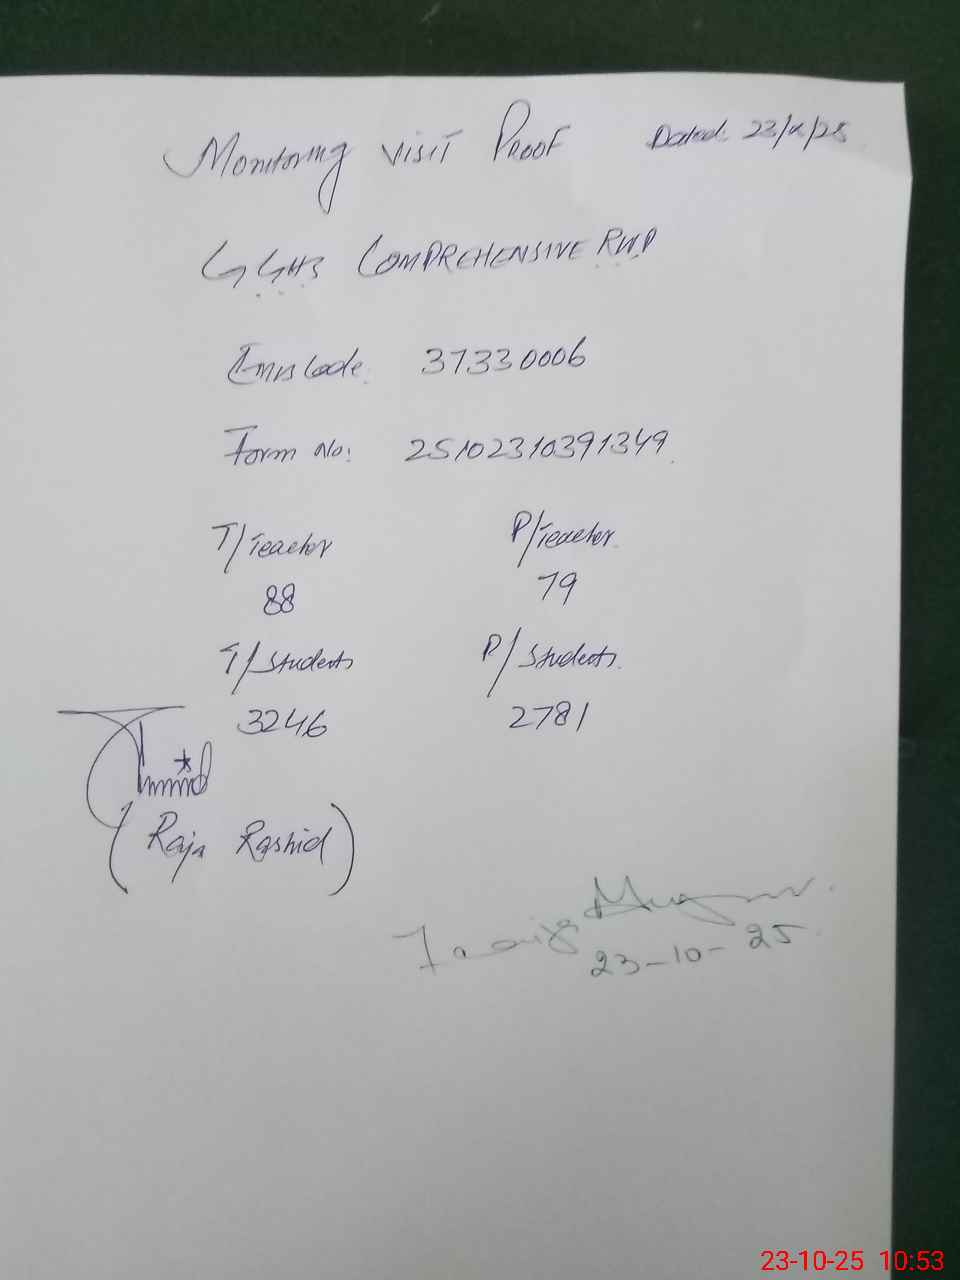 Monitoring visit Proof Dated 23/x/25
GGHS COMPREHENSIVE RWP
Emis Code: 37330006
Form No: 25102310391349
T/Teacher P/Teacher
88 79
T/Students P/Students
3246 2781
(Raja Rashid)
23-10-25
23-10-25 10:53